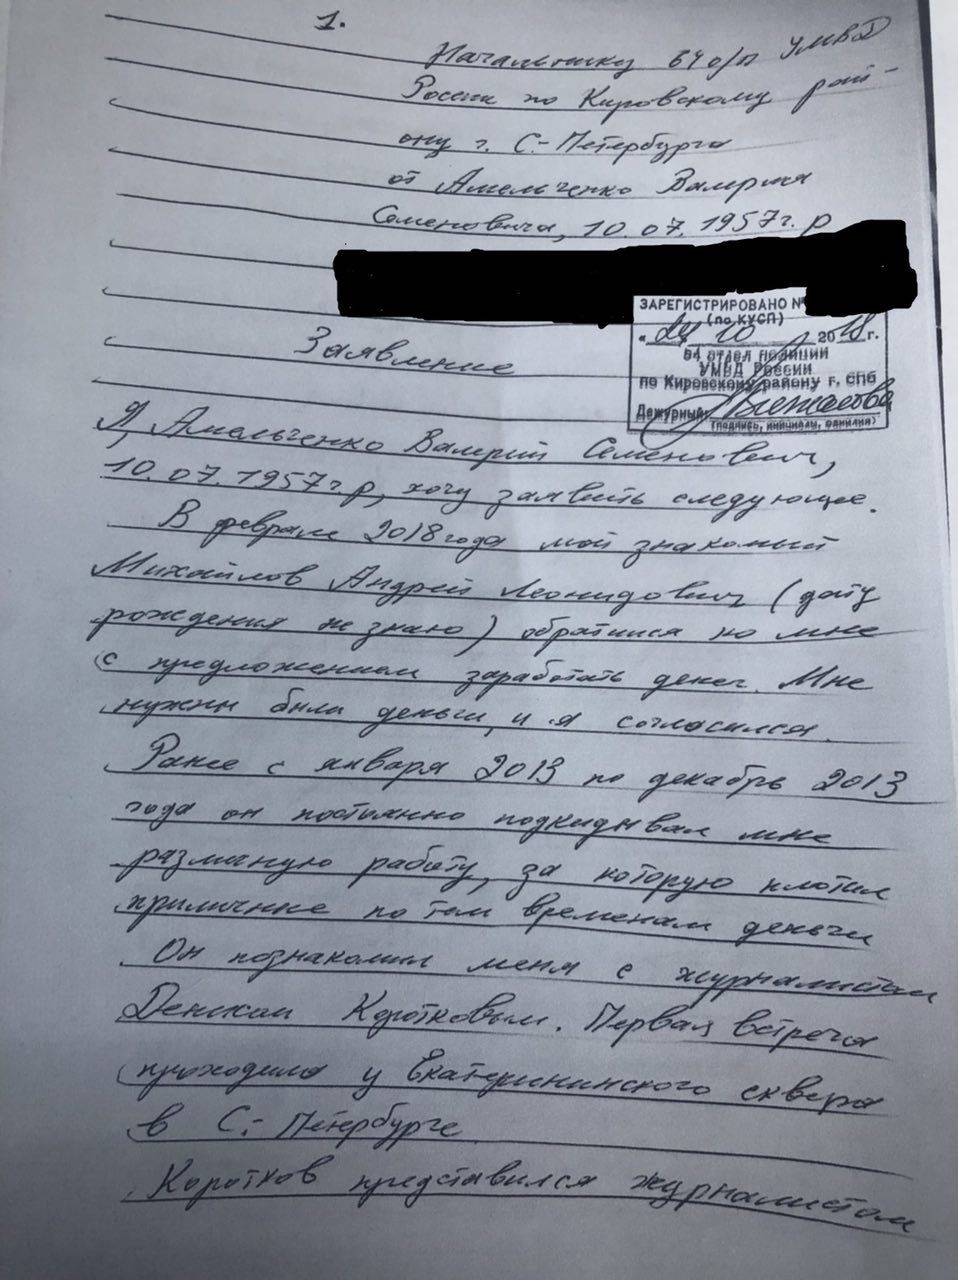 1.
Начальнику 64 о/п УМВД
России по Кировскому рай-
ону г. С.-Петербурга
от Амельченко Валерия
Семеновича, 10.07.1957г.р
ЗАРЕГИСТРИРОВАНО №
(по КУСП)
« 24 » 10 2018 г.
64 ОТДЕЛ ПОЛИЦИИ
УМВД РОССИИ
по Кировскому району г. СПб
Дежурный:
(подпись, инициалы, фамилия)
Заявление
Я, Амельченко Валерий Семенович,
10.07.1957г.р, хочу заявить следующее.
В феврале 2018 года мой знакомый
Михайлов Андрей Леонидович (дату
рождения не знаю) обратился ко мне
с предложением заработать денег. Мне
нужны были деньги, и я согласился.
Ранее с января 2013 по декабрь 2013
года он постоянно подкидывал мне
различную работу, за которую платил
приличные по тем временам деньги
Он познакомил меня с журналистом
Денисом Коротковым. Первая встреча
проходила у Екатерининского сквера
в С.-Петербурге
Коротков представился журналистом